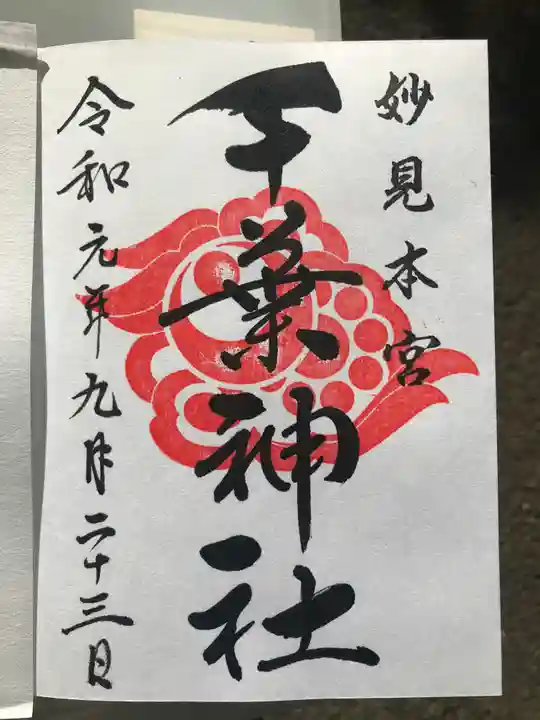 妙見本宮
千葉神社
令和元年九月二十三日